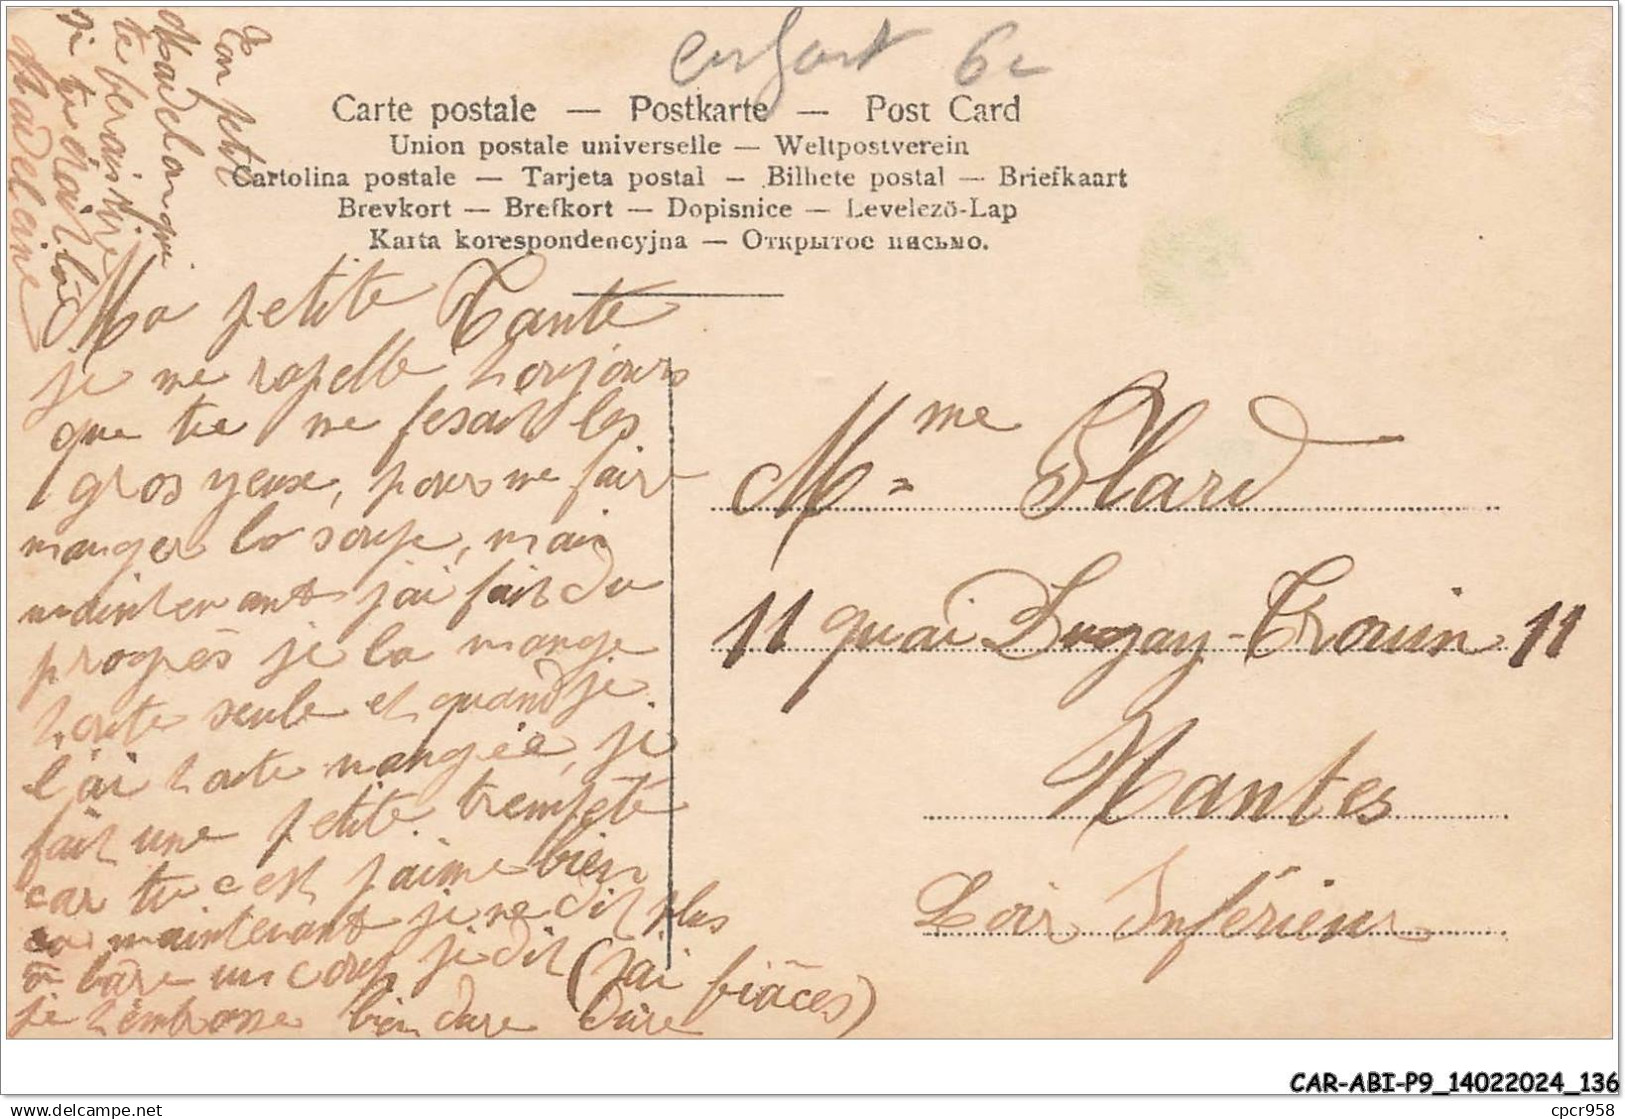 enfant 6c
Carte postale — Postkarte — Post Card
Union postale universelle — Weltpostverein
Cartolina postale — Tarjeta postal — Bilhete postal — Briefkaart
Brevkort — Brefkort — Dopisnice — Levelezö-Lap
Karta korespondencyjna — Открытое письмо.
Ma petite Tante
je me rapelle toujours
que tu me fesait les
gros yeux, pour me faire
manger la soupe, mais
maintenant j'ai fait du
progrès je la mange
toute seule et quand je
l'ai toute mangée, je
fait une petite trempete
car tu c est j'aime bien
maintenant je ne dit plus
a bare un coup je dit (jai biāces)
je t'embrasse bien dure dure
Ton petit
Madelon qui
te berais
si tu étai là
Madelaine
Mme Plard
11 quai Dugay-Trouin 11
Nantes
Loir Inférieur
CAR-ABI-P9_14022024_136
cpcr958